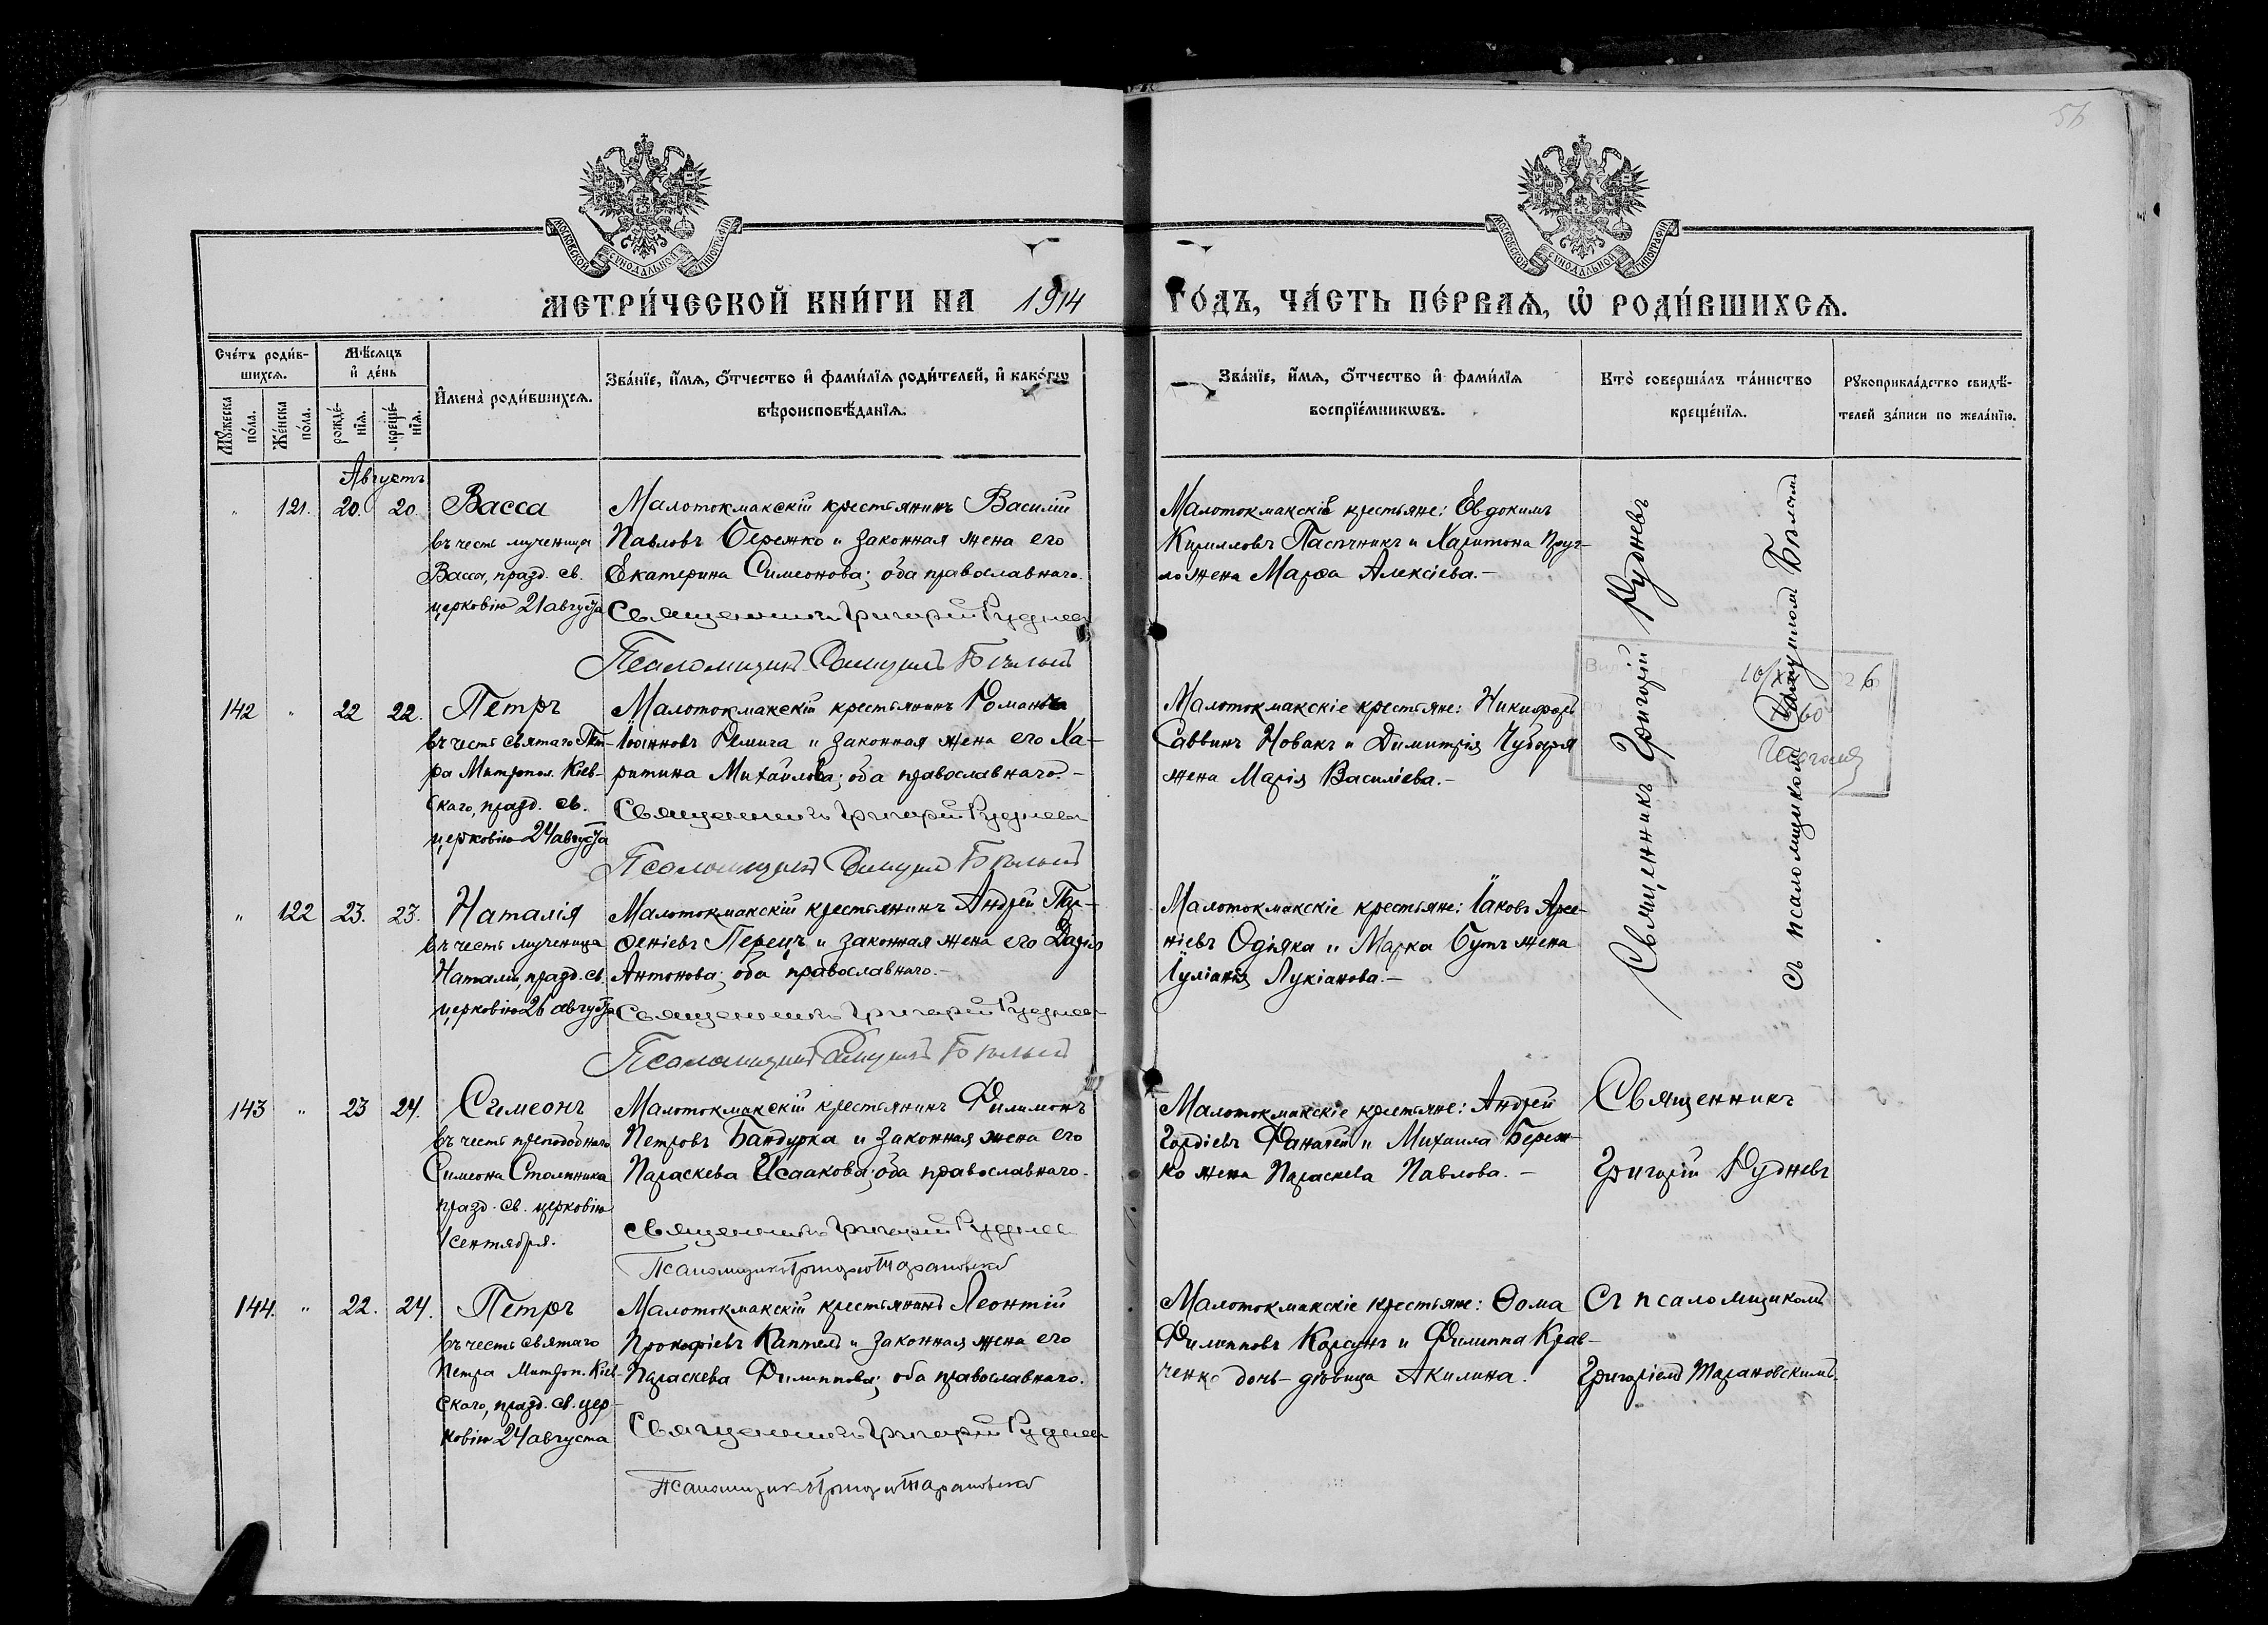 56
МОСКОВСКОЙ СѴНОДАЛЬНОЙ ТИПОГРАФІИ
МОСКОВСКОЙ СѴНОДАЛЬНОЙ ТИПОГРАФІИ
МЕТРИ́ЧЕСКОЙ КНИ́ГИ НА 1914 ГО́ДЪ, ЧА́СТЬ ПЕ́РВАѦ, Ѡ҆ РОДИ́ВШИХСѦ.
Сче́тъ роди́в-
шихсѧ.
Мꙋ́жеска по́ла.
Же́нска по́ла.
Мѣ́сѧцъ
и҆ де́нь
рожде́-
нїѧ.
креще́-
нїѧ.
И҆мена̀ роди́вшихсѧ.
Зва́нїе, и҆́мѧ, ѻ҆́тчество и҆ фами́лїѧ роди́телей, и҆ како́гѡ
вѣроисповѣ́данїѧ.
Зва́нїе, и҆́мѧ, ѻ҆́тчество и҆ фами́лїѧ
воспрїе́мникѡвъ.
Кто̀ соверша́лъ та́инство
креще́нїѧ.
Рꙋкоприкла́дство свидѣ́-
телей за́писи по жела́нїю.
Августъ
" 121. 20. 20.
Васса
въ честь мученица
Васса, празд. св.
церковію 21 августа
Малотокмакскій крестьянинъ Василій
Павловъ Бережко и законная жена его
Екатерина Симеонова; оба православнаго.
Священникъ Григорій Рудневъ
Псаломщикъ Бѣлый
Малотокмакскіе крестьяне: Евдокимъ
Кирилловъ Пасѣчникъ и Харитона Круг-
ло жена Марѳа Алексіева.-
Священникъ Григорій Рудневъ
съ псаломщикомъ Бѣлымъ
142 " 22 22.
Петръ
въ честь святаго Пет-
ра Митропол. Кіев-
скаго, празд. св.
церковію 24 августа
Малотокмакскій крестьянинъ Романъ
Іоанновъ и законная жена его Ха-
ритина Михайлова; оба православнаго.-
Священникъ Григорій Рудневъ
Псаломщикъ Бѣлый
Малотокмакскіе крестьяне: Никифоръ
Саввинъ Новакъ и Димитрія Чубаря
жена Марія Василіева.-
" 122 23. 23.
Наталія
въ честь мученица
Наталіи, празд. св.
церковію 26 августа
Малотокмакскій крестьянинъ Андрей Пар-
ѳеніевъ Перецъ и законная жена его Дарія
Антонова; оба православнаго.-
Священникъ Григорій Рудневъ
Псаломщикъ Бѣлый
Малотокмакскіе крестьяне: Іаковъ Арсе-
ніевъ Одіяка и Марка Бутъ жена
Іуліанія Лукіанова.-
143 " 23 24.
Симеонъ
въ честь преподобнаго
Симеона Столпника
празд. св. церковію
1 сентября.
Малотокмакскій крестьянинъ Филимонъ
Петровъ Бандурка и законная жена его
Параскева Исаакова; оба православнаго.
Священникъ Григорій Рудневъ
Псаломщикъ Григорій Тарановскій
Малотокмакскіе крестьяне: Андрей
Гордіевъ и Михаила Береж-
ко жена Параскева Павлова.-
Священникъ
Григорій Рудневъ
144. " 22. 24.
Петръ
въ честь святаго
Петра Митроп. Кіев-
скаго, празд. св. цер-
ковію 24 августа
Малотокмакскій крестьянинъ Леонтій
Прокофіевъ и законная жена его
Параскева Филиппова; оба православнаго.
Священникъ Григорій Рудневъ
Псаломщикъ Григорій Тарановскій
Малотокмакскіе крестьяне: Ѳома
Филипповъ Корсунъ и Филиппа Крав-
ченко дочь-дѣвица Акилина.
Съ псаломщикомъ
Григоріемъ Тарановскимъ.